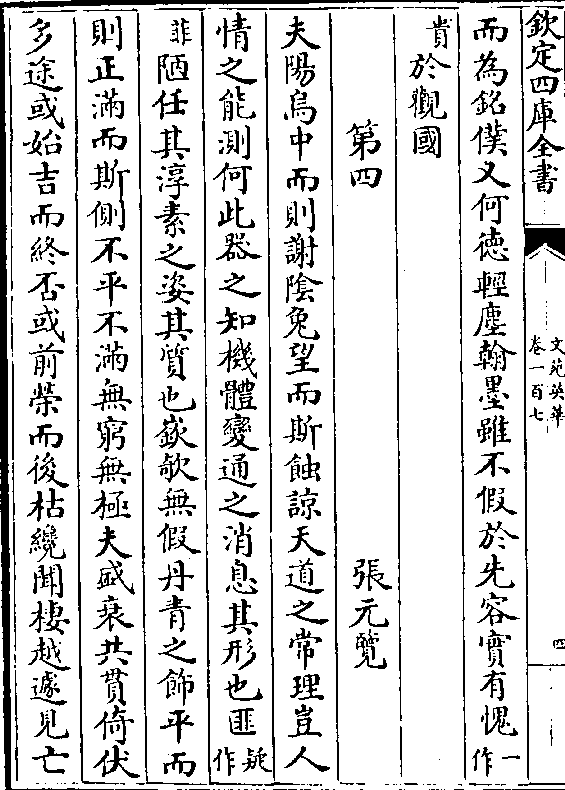 欽定四庫全書
文苑英華
卷一百七
四
而為銘僕又何德輕塵翰墨雖不假於先容實有愧一作
賁於觀國
第四 張元覽
夫陽烏中而則謝陰兔望而斯蝕諒天道之常理豈人
情之能測何此器之知機體變通之消息其形也匪疑作
菲陋任其淳素之姿其質也嶔欹無假丹青之飾平而
則正滿而斯側不平不滿無窮無極夫盛衰共貫倚伏
多途或始吉而終否或前榮而後枯纔聞棲越遽見亡